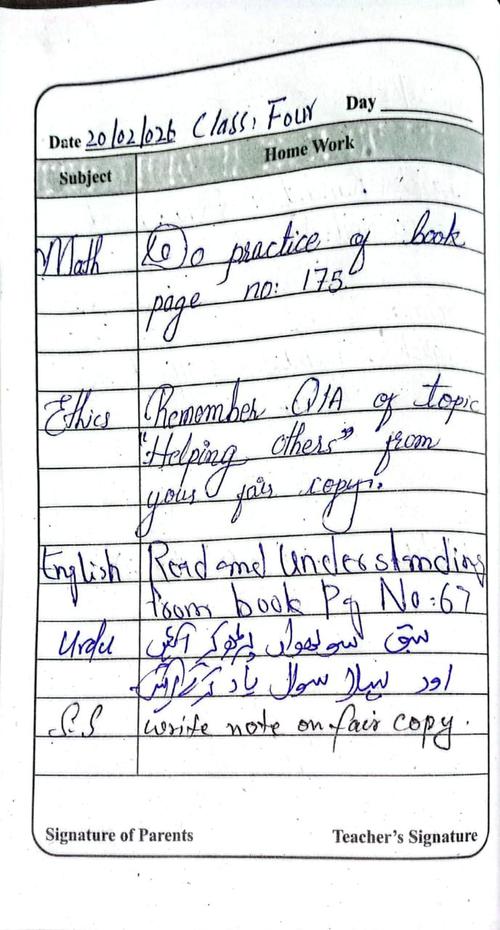 Date 20/02/026 Class: Four Day
Subject Home Work
Math Do practice of book
page no: 175.
Ethics Remember Q/A of topic
"Helping others" from
your fair copy.
English Read and Understanding
from book Pg No: 67
Urdu سبق سولھواں پڑھ کر آئیں
اور پہلا سوال یاد کر کے آئیں
S.S write note on fair copy.
Signature of Parents Teacher's Signature